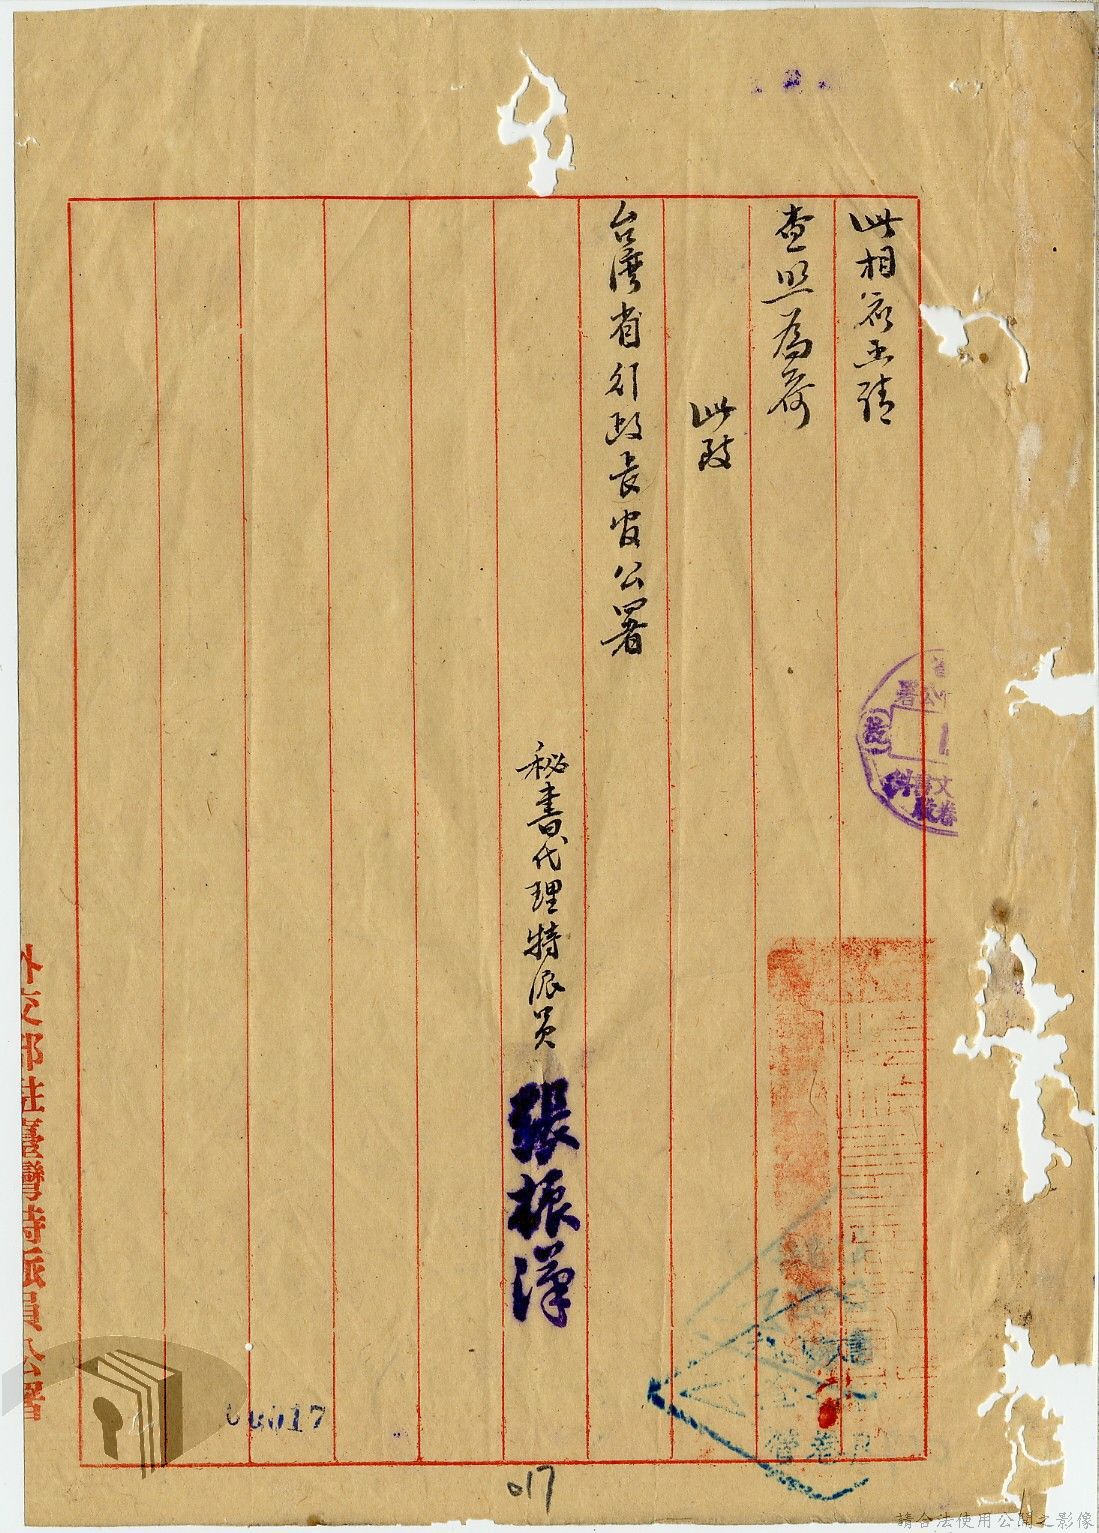 此相應函請
查照為荷
此致
台灣省行政長官公署
秘書代理特派員
張振漢
外交部駐臺灣特派員公署
017
請合法使用公開之影像